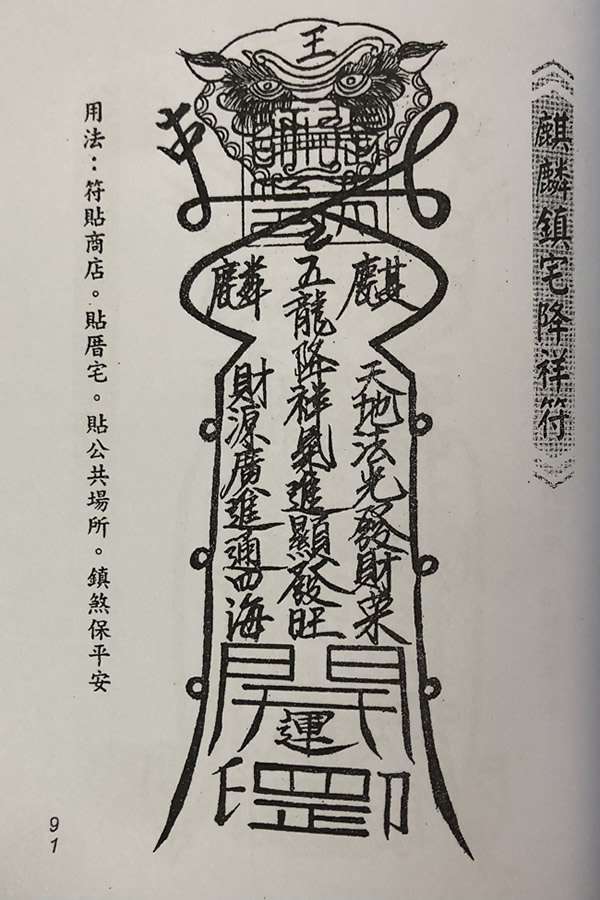 麒麟鎮宅降祥符
王
麒
麟
五龍降祥氣進顯發旺
天地法光發財來
財源廣進通四海
開
運
印
用法：符貼商店。貼厝宅。貼公共場所。鎮煞保平安
91